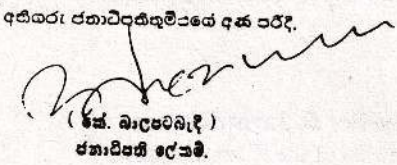 අතිගරු ජනාධිපතිතුමියගේ අණ පරිදි.
( කේ. බාලපටබැඳි )
ජනාධිපති ලේකම්.